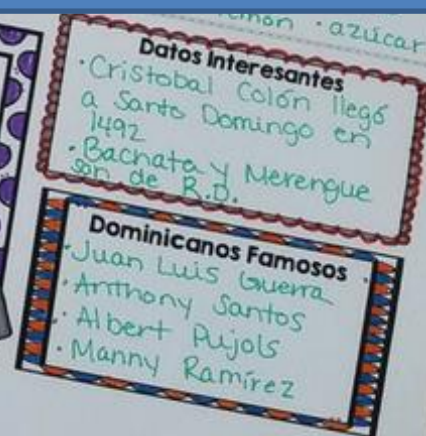 · azúcar
Datos Interesantes
· Cristobal Colón llegó
a Santo Domingo en
1492
· Bachata y Merengue
son de R.D.
Dominicanos Famosos
· Juan Luis Guerra
· Anthony Santos
· Albert Pujols
· Manny Ramírez